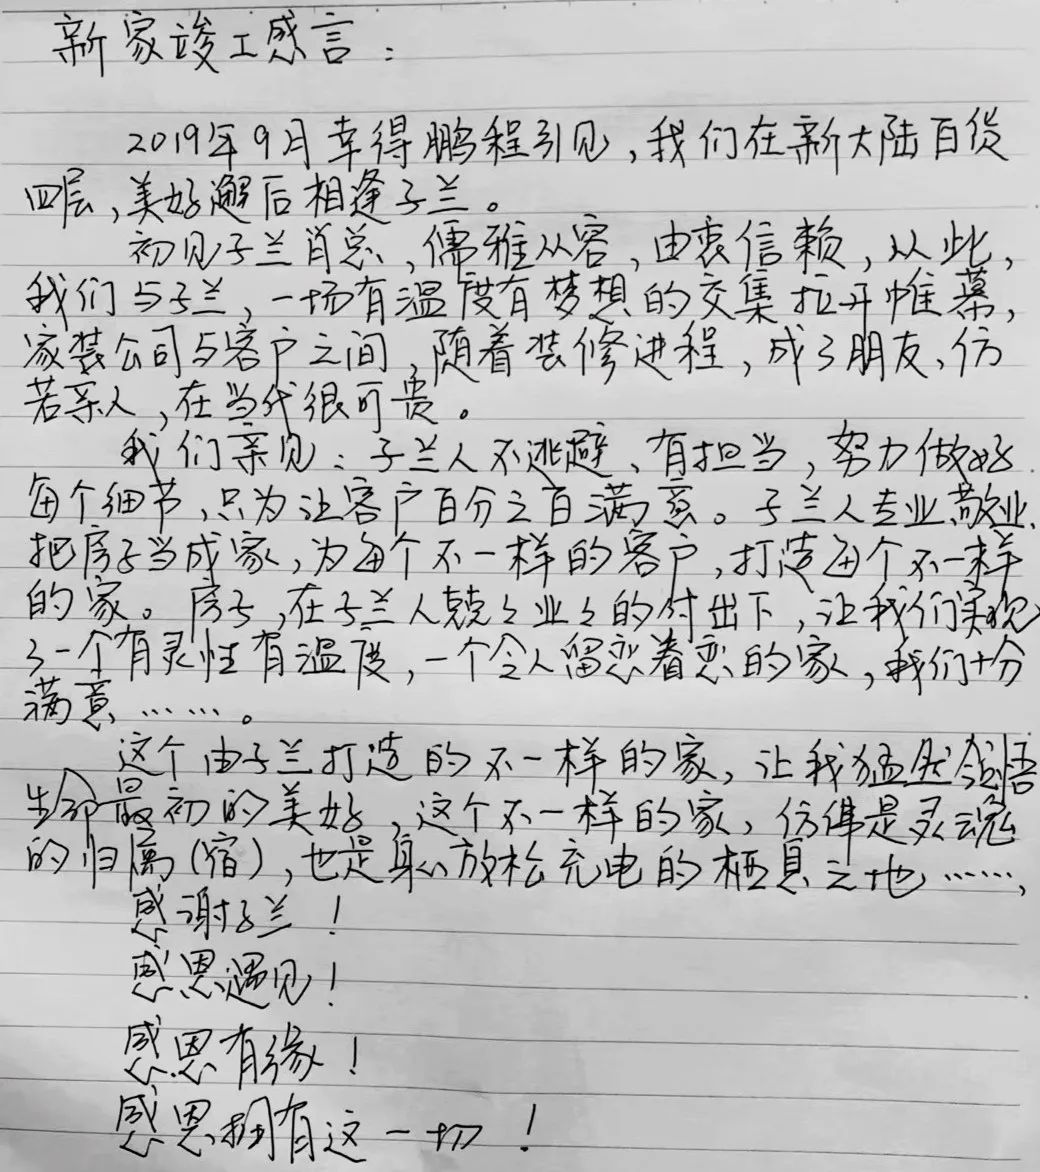 新家竣工感言：
2019年9月幸得鹏程引见，我们在新大陆百货
四层，美好邂后相逢子兰。
初见子兰肖总，儒雅从容，由衷信赖，从此，
我们与子兰，一场有温度有梦想的交集拉开帷幕，
家装公司与客户之间，随着装修进程，成了朋友、仿
若亲人，在当代很可贵。
我们亲见：子兰人不逃避、有担当，努力做好
每个细节，只为让客户百分之百满意。子兰人专业敬业、
把房子当成家，为每个不一样的客户，打造每个不一样
的家。房子，在子兰人兢々业々的付出下，让我们实现
了一个有灵性有温度，一个令人留恋眷恋的家，我们十分
满意………。
这个由子兰打造的不一样的家，让我猛然领悟
生命最初的美好，这个不一样的家，仿佛是灵魂
的归属（宿），也是身心放松充电的栖息之地……，
感谢子兰！
感恩遇见！
感恩有缘！
感恩拥有这一切！